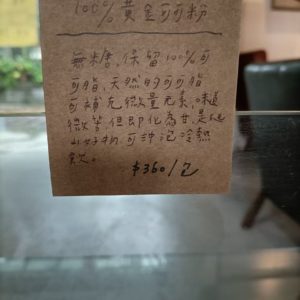 100%黃金可可粉
無糖,保留100%可
可脂,天然的可可脂
可補充微量元素,味道
微苦,但即化為甘,是健
好物,可沖泡冷熱
飲。
$360/包